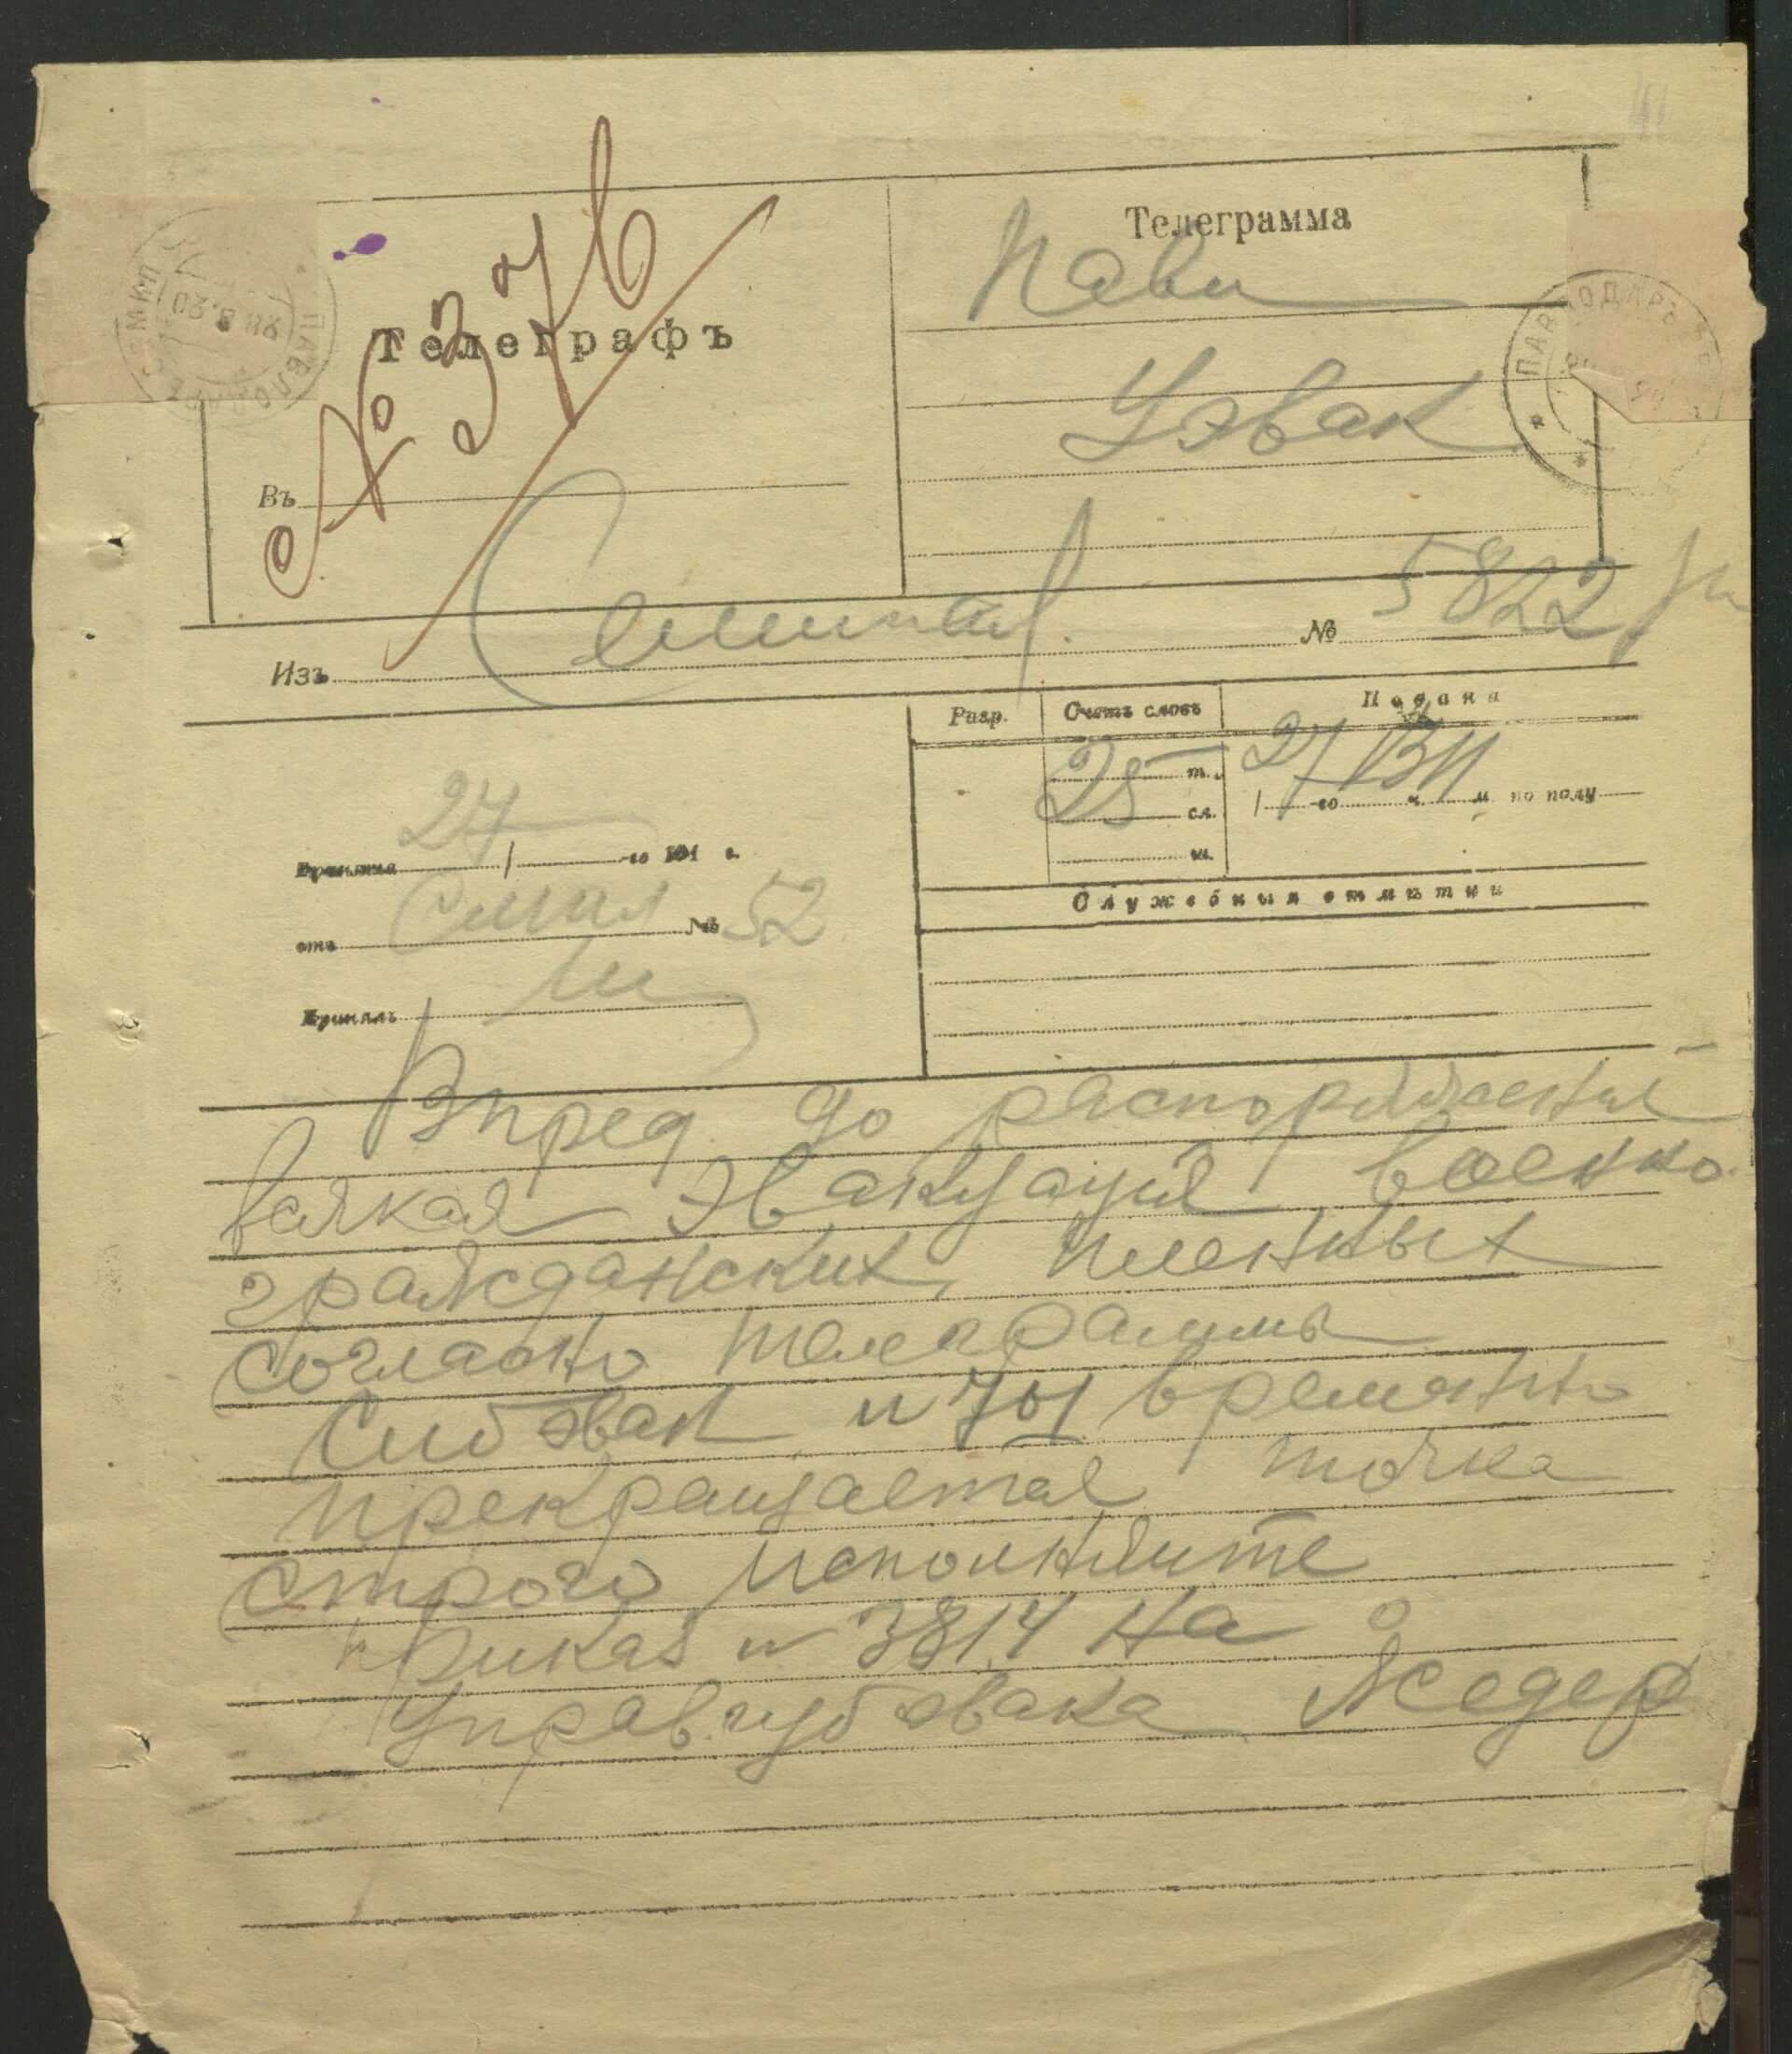 № 376
Телеграмма
Павл
Телеграфъ
Уэвак
ПАВЛОДАРЪ
ПАВЛОДАРЪ
28.8.20
Въ
5822
Изъ
№
Разр.
Счетъ словъ
Подана
25
т.
27
13
сл.
го ч. м. по полу
ш.
24
Принята го 191 г.
Служебныя отмѣтки
отъ
№ 52
Принялъ
Впред до распоряжения
всякая эвакуация военно
гражданских пленных
согласно телеграммы
Сибэвак н 701 временно
прекращается точка
строго исполняйте
приказ н 3814 На
Управгубэвака Жедер